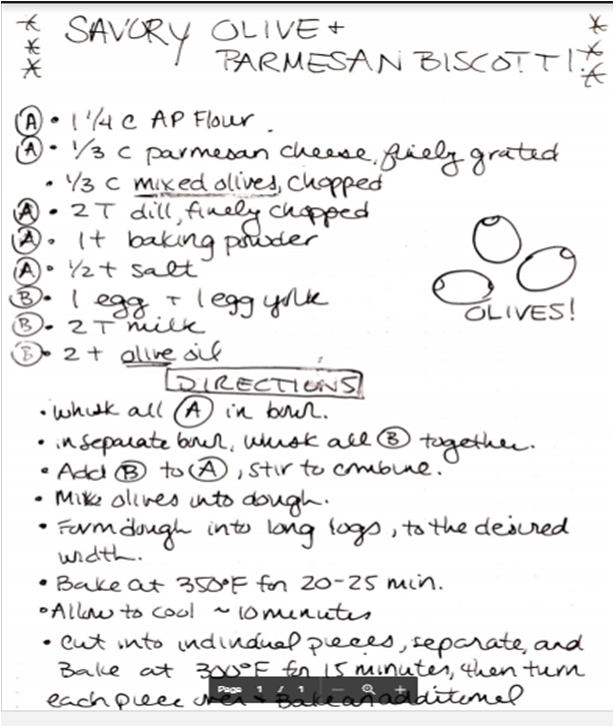 SAVORY OLIVE +
PARMESAN BISCOTTI!
Ⓐ • 1 1/4 C AP Flour
Ⓐ • 1/3 C parmesan cheese, finely grated
• 1/3 C mixed olives, chopped
Ⓐ • 2 T dill, finely chopped
Ⓐ • 1 t baking powder
Ⓐ • 1/2 t salt
Ⓑ • 1 egg + 1 egg yolk
Ⓑ • 2 T milk
Ⓑ • 2 t olive oil
OLIVES!
DIRECTIONS
• Whisk all Ⓐ in bowl.
• in separate bowl, whisk all Ⓑ together.
• Add Ⓑ to Ⓐ, stir to combine.
• Mix olives into dough.
• Form dough into long logs, to the desired
width.
• Bake at 350°F for 20-25 min.
• Allow to cool ~ 10 minutes
• Cut into individual pieces, separate, and
Bake at 300°F for 15 minutes, then turn
each piece over + Bake an additional
Page 1 / 1